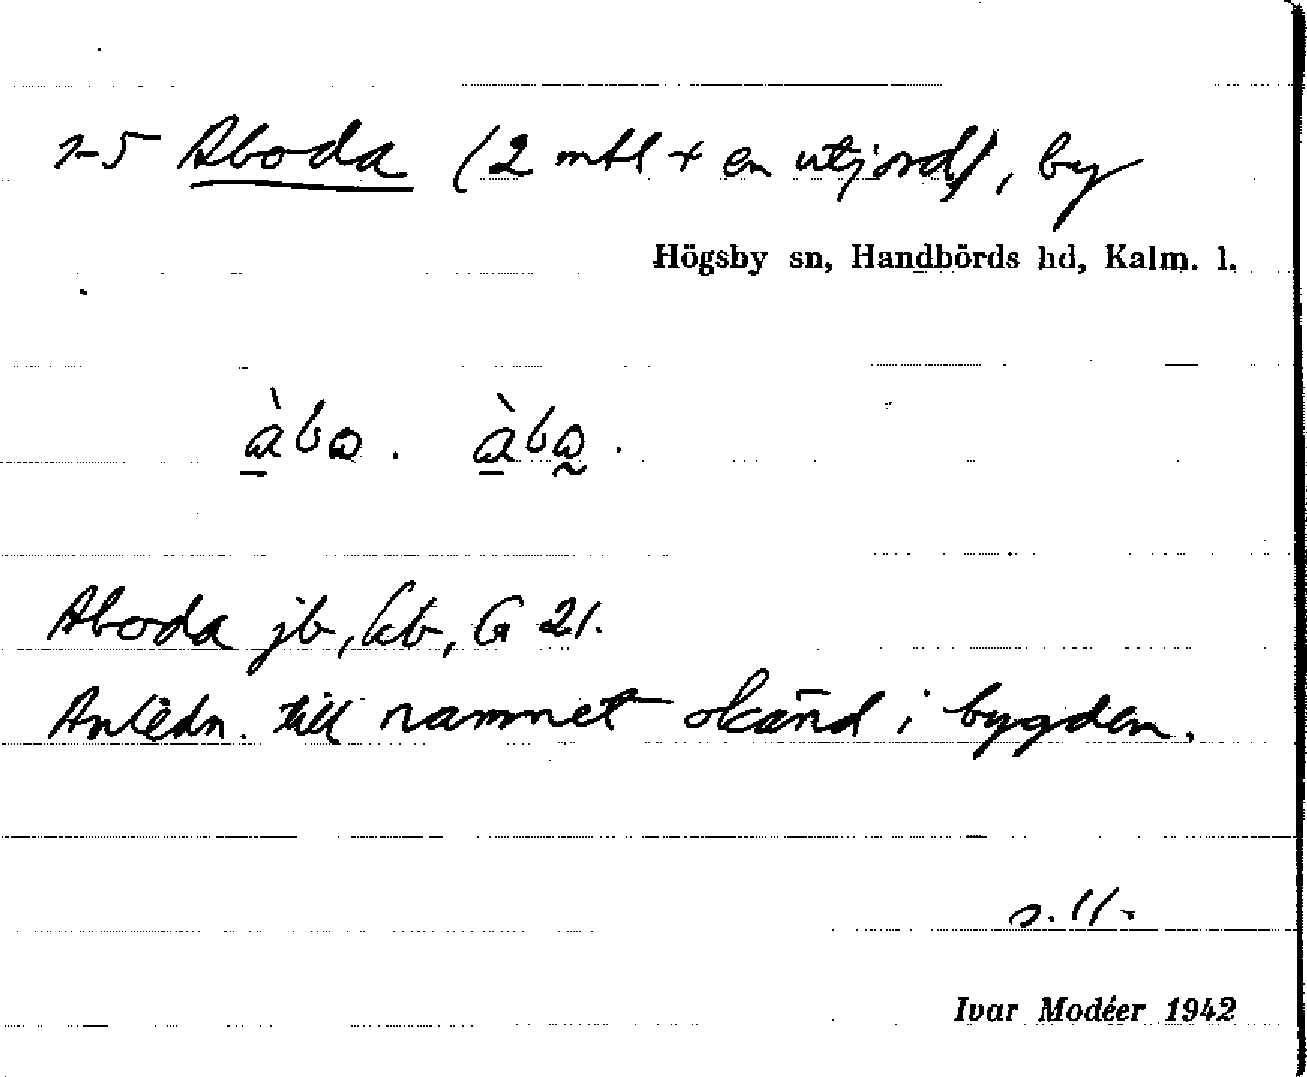 1-5 Aboda (2 mtl + en utjord), by
Högsby sn, Handbörds hd, Kalm. l.
àbo. àbo.
Aboda jb, kb, G 21.
Anledn. till namnet okänd i bygden.
s. 11.
Ivar Modéer 1942